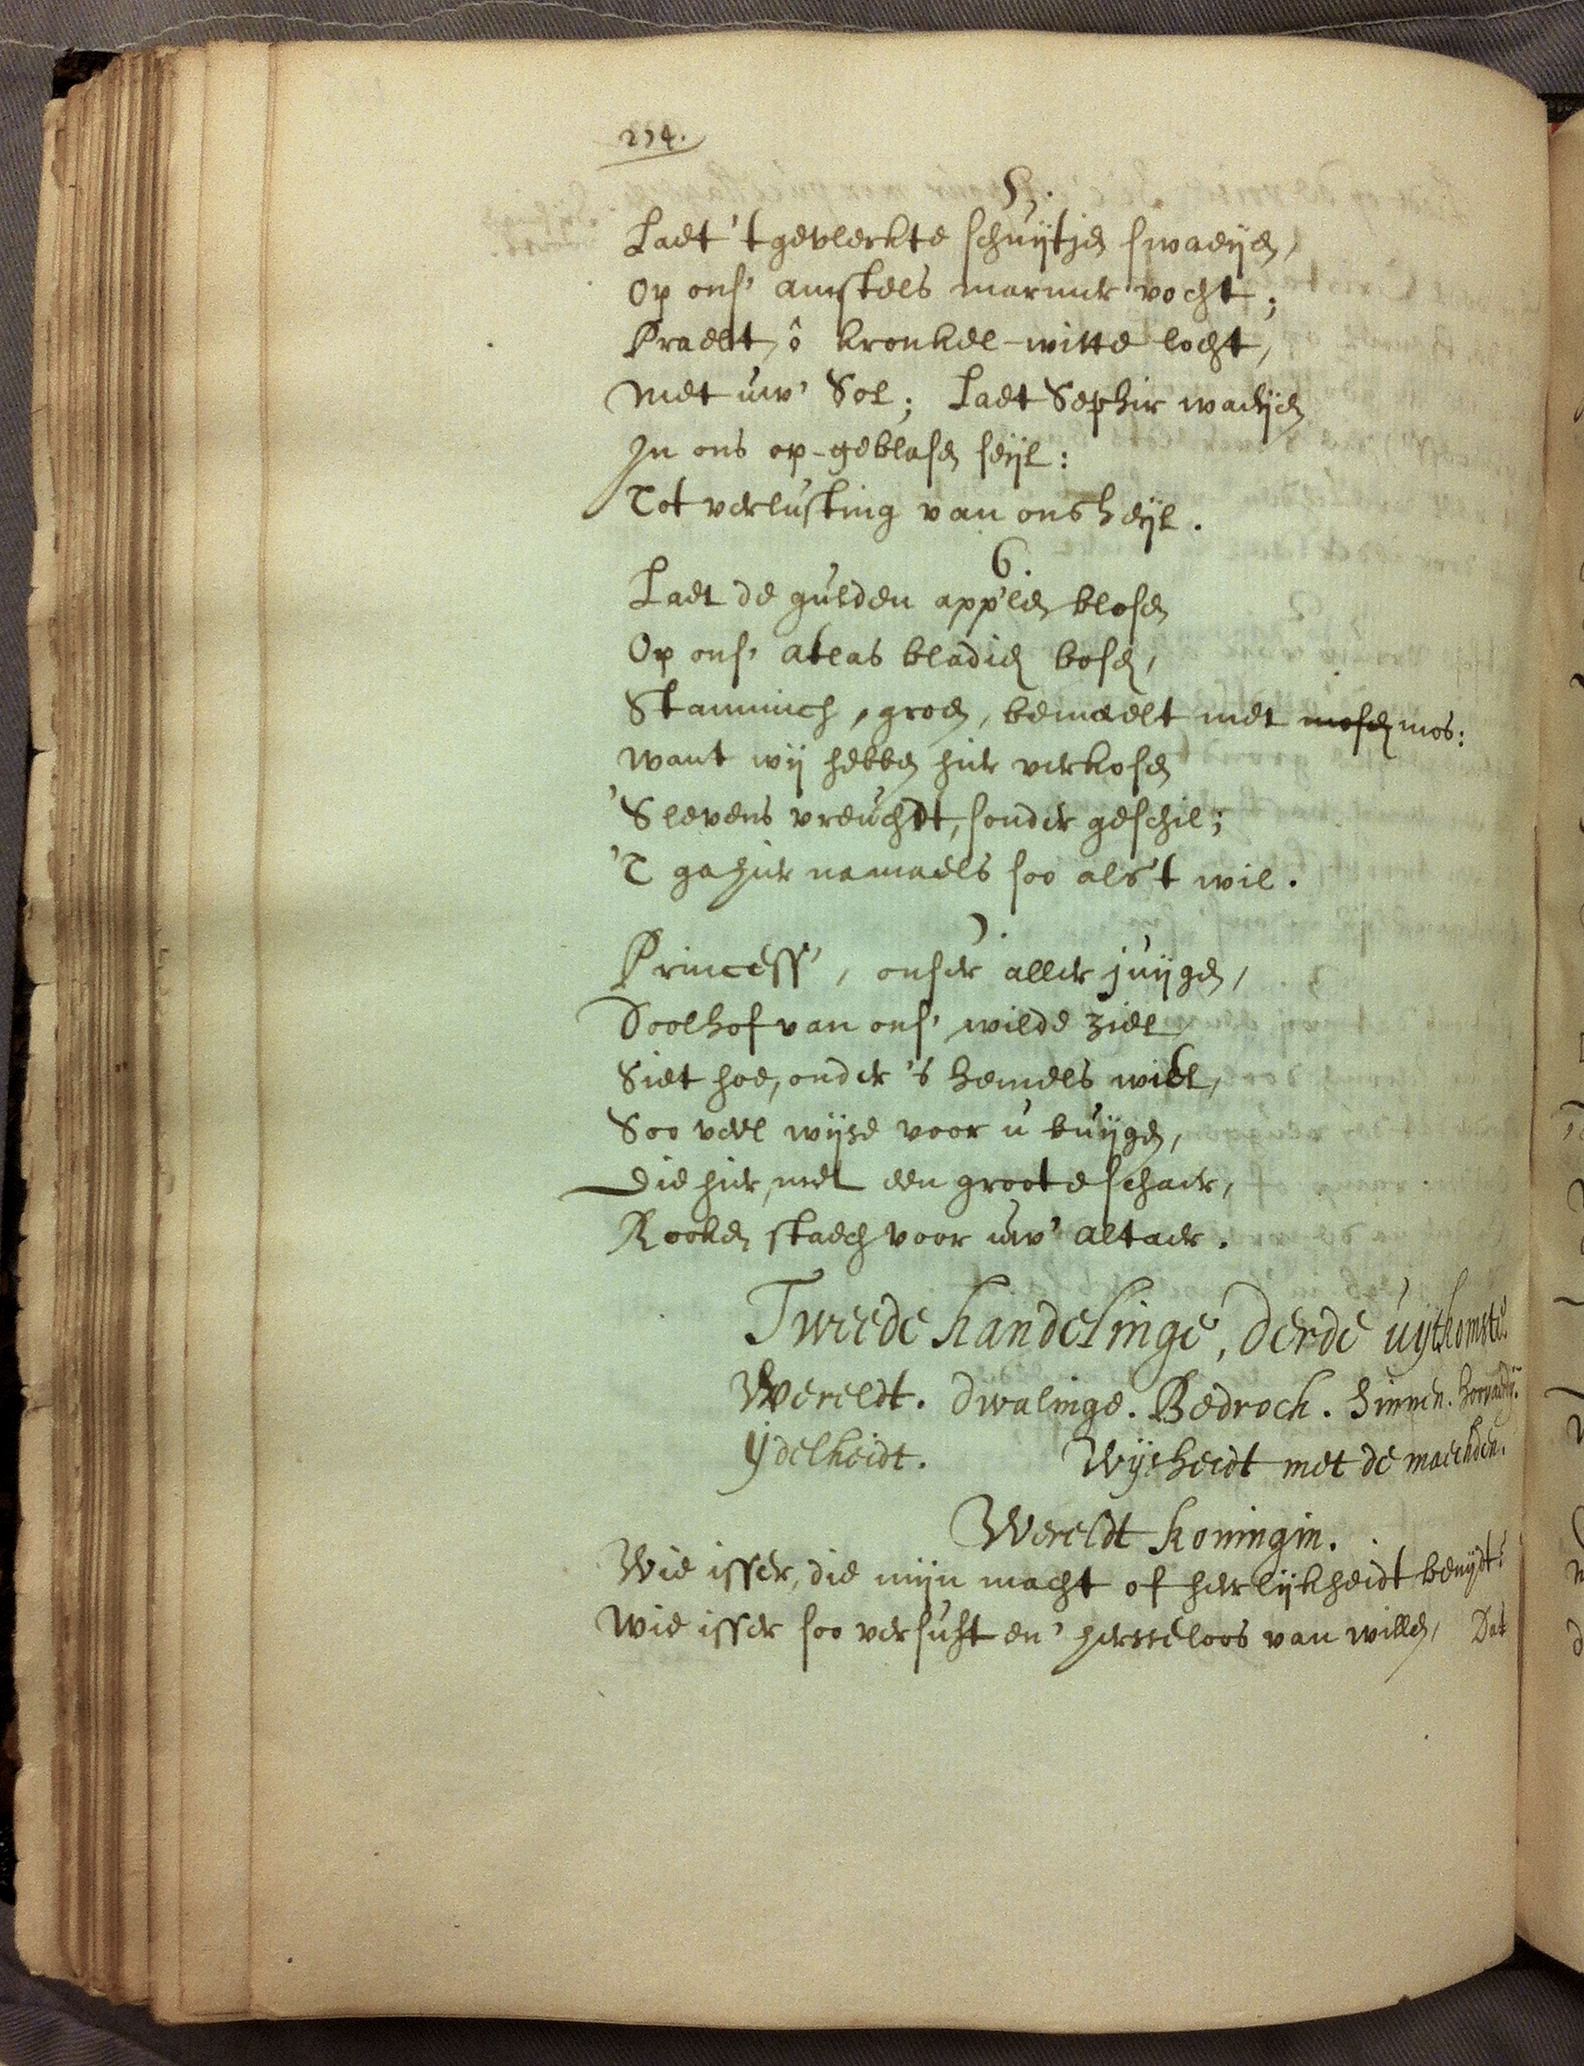 274.
5.
Laet 't gevlerkte schuijtjen swaeijen,
Op ons' amstels marmer vocht;
Praelt, ô kronkel-witte locht,
Met uw' Sol; Laet Sephir waeijen
In ons op-geblasen seijl:
Tot verlusting van ons heijl.
6.
Laet de gulden app'len blosen
Op ons' atlas bladien bosen,
Stammich, groen, bemaelt met mosen mos:
Want wij hebben hier verkosen
'Slevens vreuchdt, sonder geschil;
'T ga hier namaels soo als 't wil.
7.
Princess', onser aller juijgen,
Doolhof van ons' wilde ziel
Siet hoe, onder 's hemels wiel,
Soo veel wijse voor u buijgen,
Die hier, met een groote schaer,
Rooken staech voor uw' altaer.
Tweede handelinge, derde uijtkomste.
Wereldt. Dwalinge. Bedroch. Sinnen. Hoovaerdij.
Ydelheidt. Wijsheidt met de maechden.
Wereldt koningin.
Wie isser, die mijn macht of heerlijkheidt benijdt?
Wie isser soo versuft en' herseloos van willen,
Dat